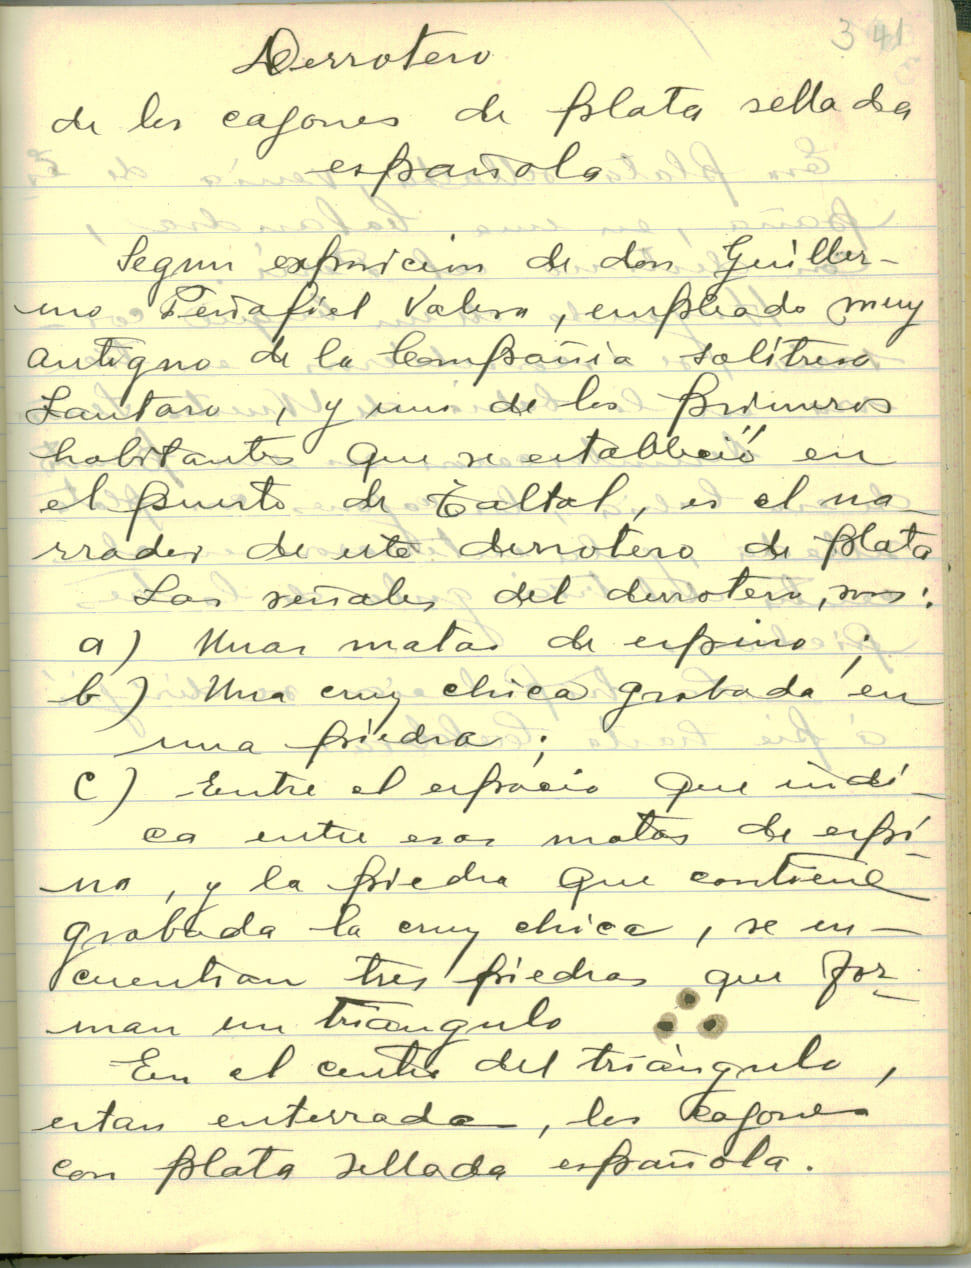 341
Derrotero
de los cajones de plata sellada
española
Segun exposicion de don Guiller-
mo Peñafiel Valera, empleado muy
antiguo de la Compañia Salitrera
Lautaro, y uno de los primeros
habitantes que se estableció en
el puerto de Taltal, es el na-
rrador de este derrotero de plata
Las señales del derrotero, son:
a) Unas matas de espino;
b) Una cruz chica grabada en
una piedra;
c) Entre el espacio que indi-
ca entre esas matas de espi-
no, y la piedra que contiene
grabada la cruz chica, se en-
cuentran tres piedras que for-
man un triangulo
En el centro del triàngulo,
estan enterrados, los cajones
con plata sellada española.